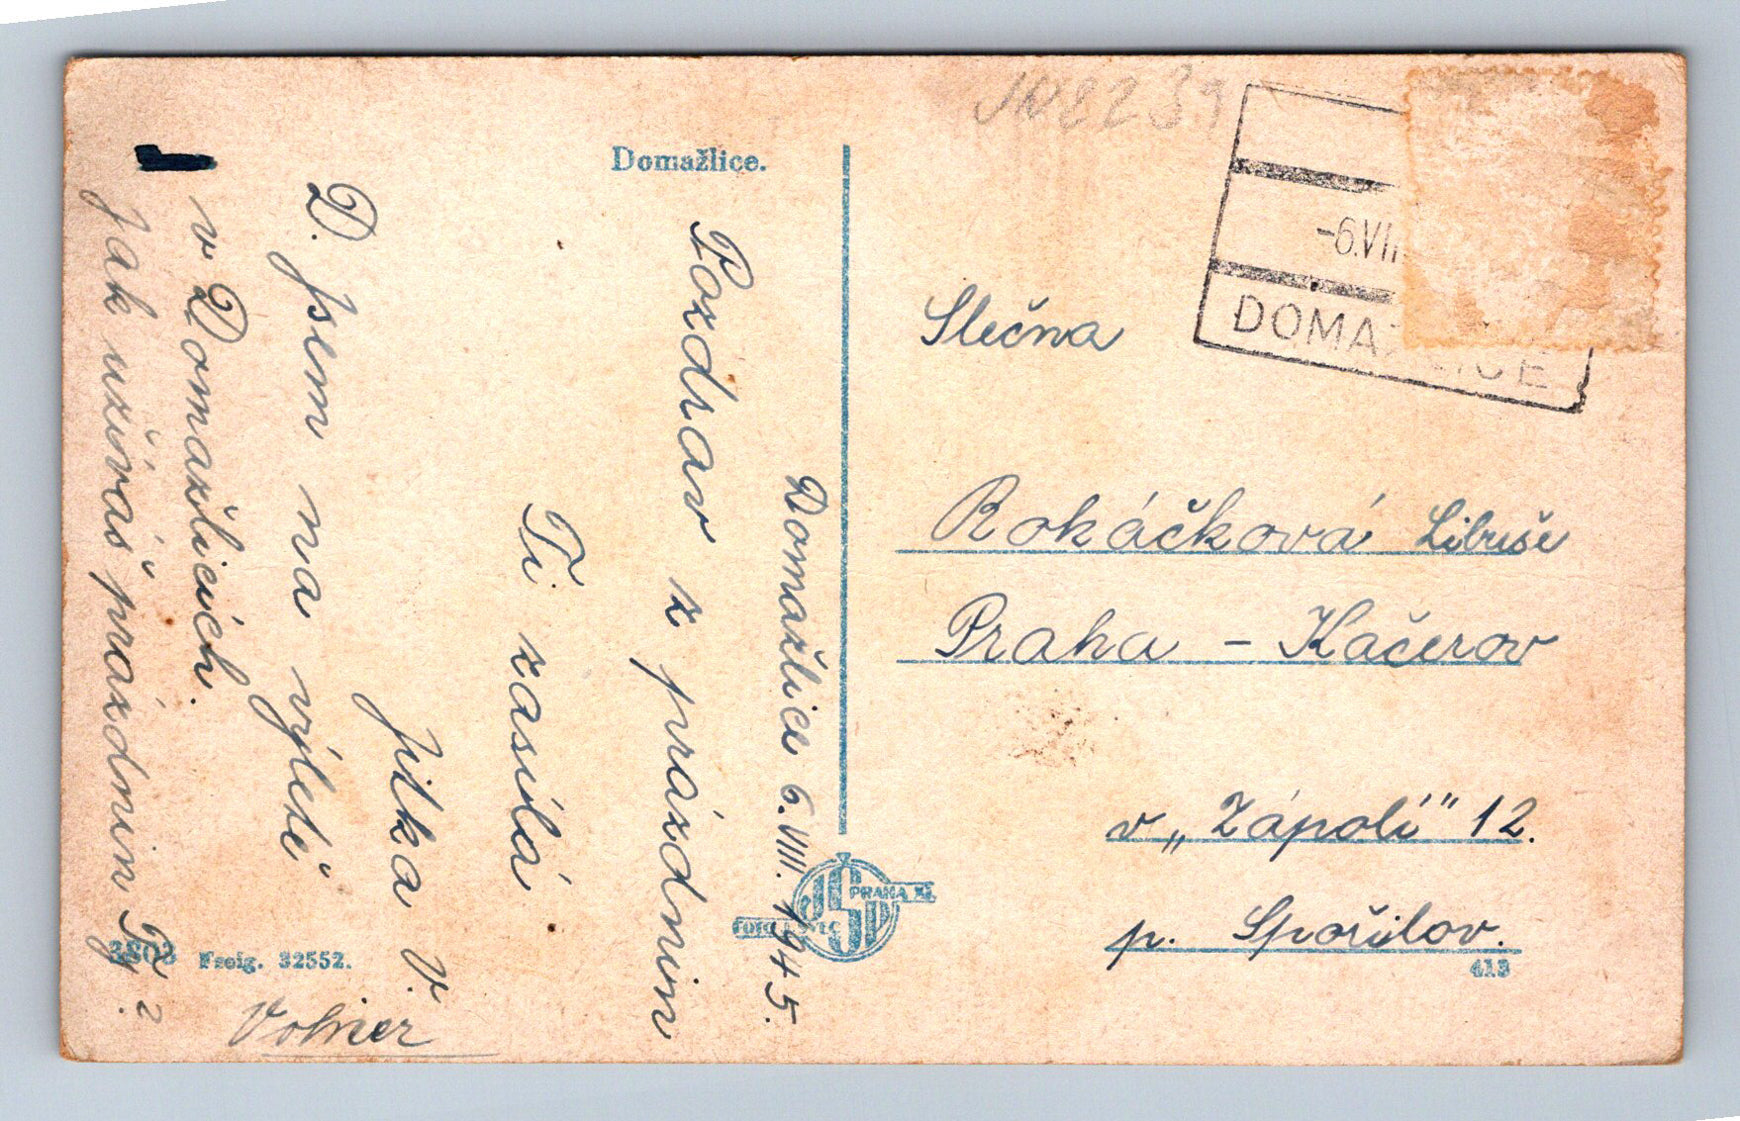 Domažlice.
Domažlice 6. VIII. 1945.
Pozdrav z prázdnin
Ti zasílá
Jitka V.
D. jsem na výletě
v Domažlicích.
Jak užíváš prázdnin Ty?
3803 Freig. 32552.
-6.VII
DOMAŽLICE
Slečna
Rokáčková Libuše
Praha - Kačerov
v „Zápolí" 12.
p. Spořilov.
413
JSP
PRAHA XI.
FOTO